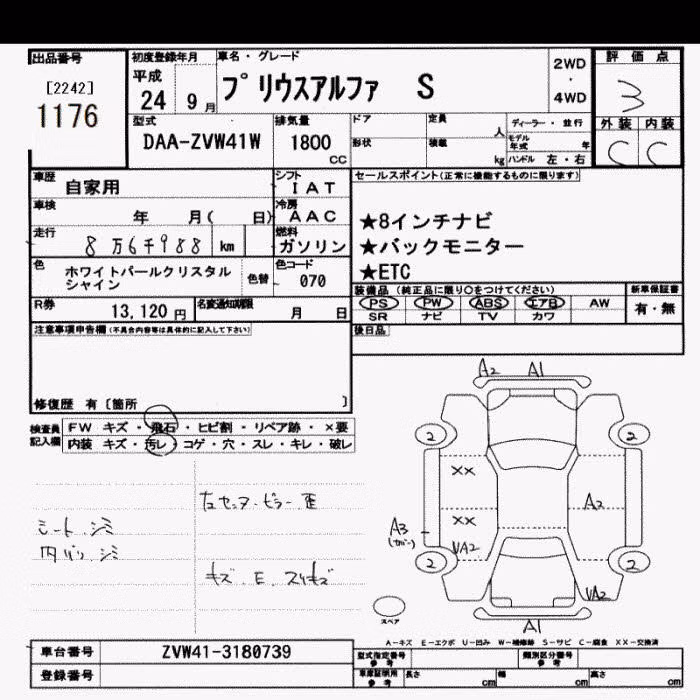 出品番号
[2242]
1176
初度登録年月
平成
24 9月
車名・グレード
プリウスアルファ S
2WD
・
4WD
評価点
3
外装 内装
C C
型式
DAA-ZVW41W
排気量
1800
CC
ドア
定員
人
形状
積載
kg
ディーラー・並行
モデル年式 年
ハンドル 左・右
車歴
自家用
シフト
IAT
車検
年 月( 日)
冷房
AAC
走行
8万6千988 km
燃料
ガソリン
色
ホワイトパールクリスタル
シャイン
色替
色コード
070
R券
13,120円
名変通知期限
月 日
セールスポイント(正常に機能するものに限ります)
★8インチナビ
★バックモニター
★ETC
装備品(純正品に限り○をつけてください)
PS PW ABS エアB AW
SR ナビ TV カワ
新車保証書
有・無
後日品
注意事項申告欄(不具合内容等は具体的に記入して下さい)
修復歴 有〔箇所 〕
検査員
記入欄
FW キズ・飛石・ヒビ割・リペア跡・×要
内装 キズ・汚レ・コゲ・穴・スレ・キレ・破レ
シート シミ
内バリ シミ
左センターピラー歪
キズ.E.スリキズ
A2 A1
2 2
XX
A2
XX
A3
(カバー)
VA2
2 2
VA2
スペア
A1
A-キズ E-エクボ U-凹み W-補修跡 S-サビ C-腐食 XX-交換済
車台番号
ZVW41-3180739
登録番号
型式指定番号
参考
類別区分番号
参考
車庫証明用
参考
長さ cm
幅 cm
高さ cm